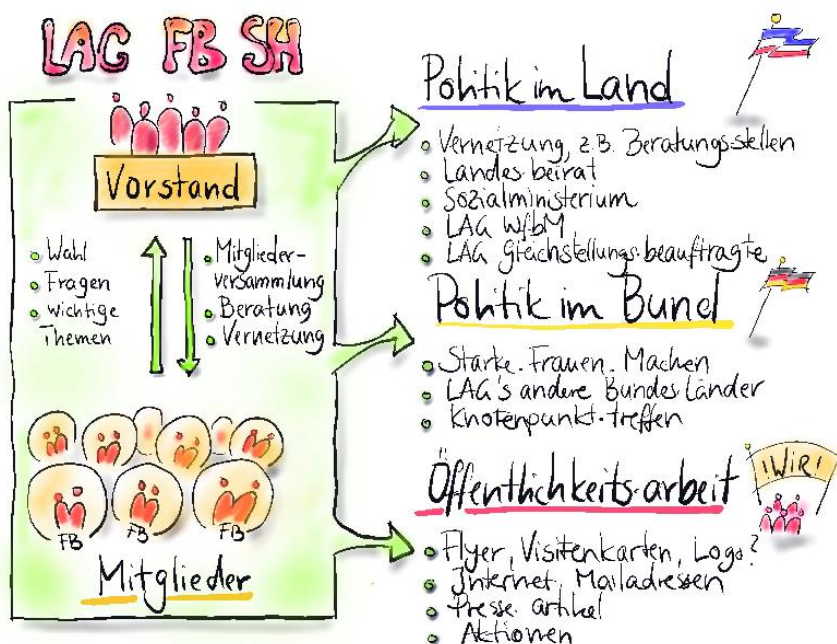 LAG FB SH
Vorstand
Wahl
Fragen
wichtige
Themen
Mitglieder-
versammlung
Beratung
Vernetzung
FB
FB
FB
Mitglieder
Politik im Land
Vernetzung, z.B. Beratungs·stellen
Landes·beirat
Sozialministerium
LAG WfbM
LAG Gleichstellungs·beauftragte
Politik im Bund
Starke.Frauen.Machen
LAG's andere Bundes·länder
Knotenpunkt·treffen
Öffentlichkeits·arbeit
!WIR!
Flyer, Visitenkarten, Logo?
Internet, Mailadressen
Presse·artikel
Aktionen